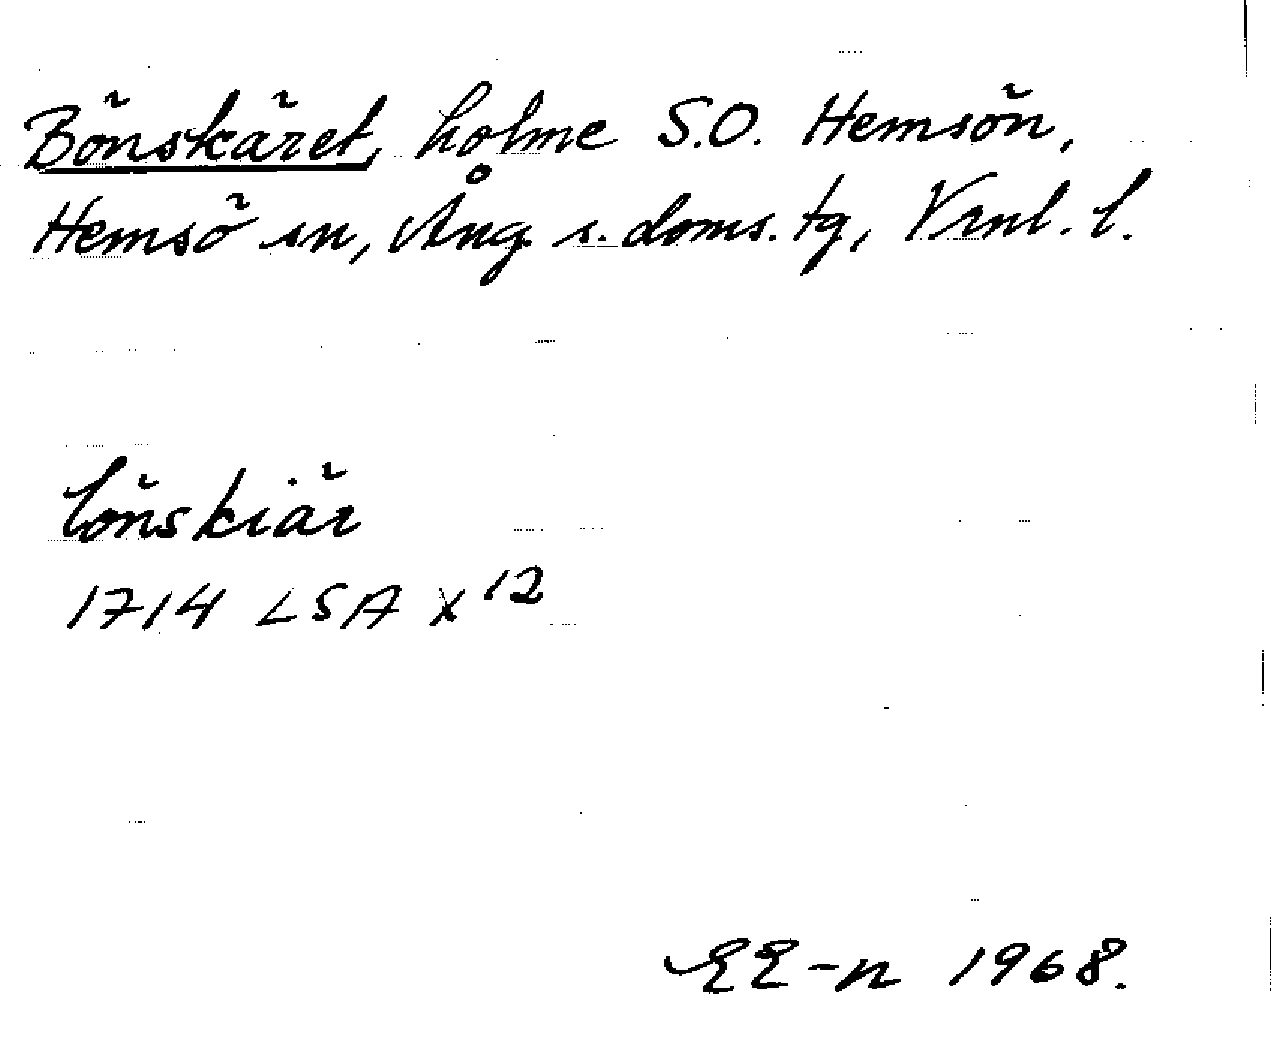 Bönskäret, holme S.O. Hemsön,
Hemsö sn, Ång. s. doms. tg, Vrnl. l.
lönskiär
1714 LSA X 12
EE-n 1968.